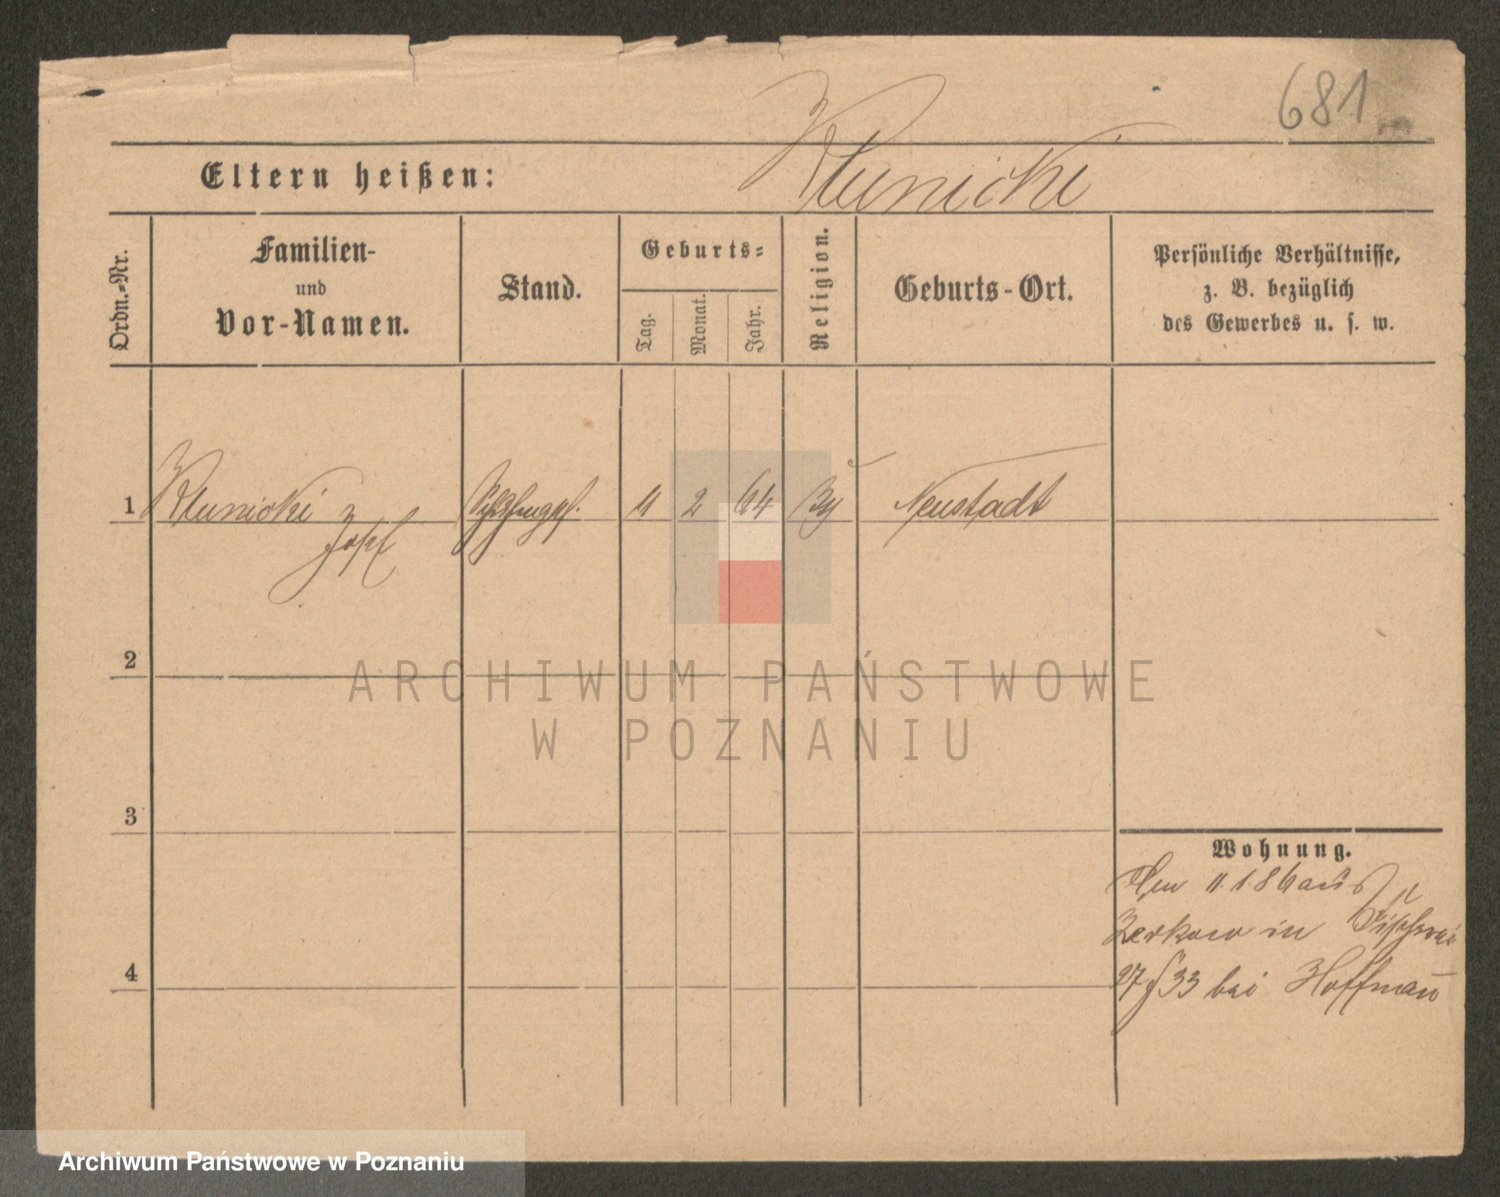 681
Eltern heißen: Klunicki
Ordn.-Nr.
Familien-
und
Vor-Namen.
Stand.
Geburts-
Tag.
Monat.
Jahr.
Religion.
Geburts-Ort.
Persönliche Verhältnisse,
z. B. bezüglich
des Gewerbes u. s. w.
1 Klunicki 11 2 64 Neustadt
Josef
2
ARCHIWUM PAŃSTWOWE
W POZNANIU
3
Wohnung.
11.1.86 aus
Zerkow in Fischerei
33 bei Hoffmann
4
Archiwum Państwowe w Poznaniu